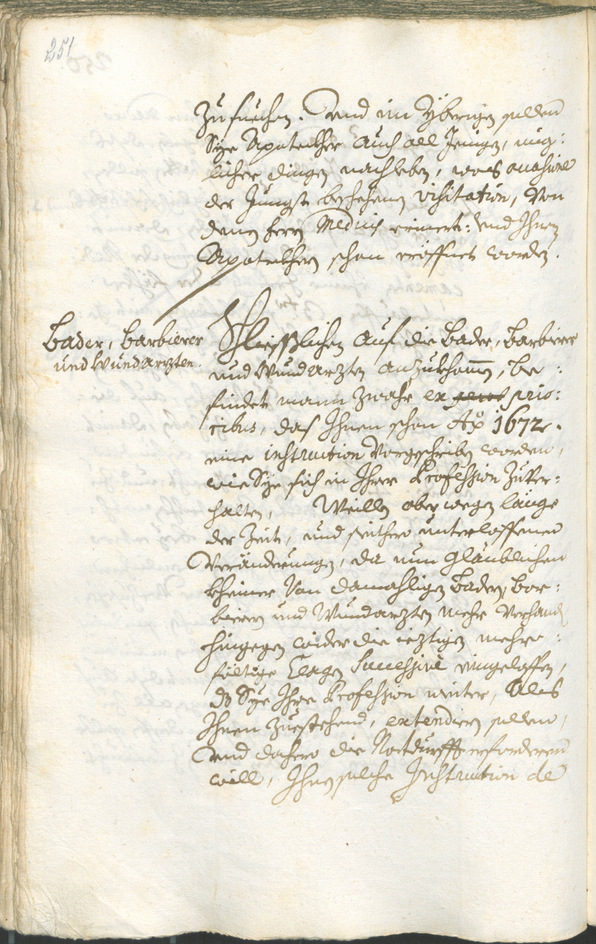 251
zu suechen. Und im Ybrigen sollen
Sye Apotecker auch all Jenigen, müg:
licher dingen nachleben, was
der Jüngst beschehenen visitation, von
denen herrn Medicis erinnert: und Ihnen
Apoteckern schon eröffnet worden.
Bader, Barbierer
und Wundarzten.
Schliesslichen auf die Bader, Barbierer
und Wundarzten anzukhomen, be:
findet mann zwahr ex prio:
ribus, das Ihnen schon Aō 1672.
eine instruction vorgeschriben worden,
wie Sye sich in Ihrer Profession zuver:
halten, Weillen aber wegen länge
der Zeit, und seithero unterloffenen
Veränderungen, da nun glaublichen
kheiner von damahligen Badern, Bar:
bierern und Wundarzten mehr verhanden
hingegen wider die ieztigen mehr:
fältige Clagen Successive eingeloffen,
ds Sye Ihre Profession weiter, Alss
Ihnen zuestehend, extendiern sollen,
und dahero die Notdurfft erforderen
will, Ihnen solche Instruction de